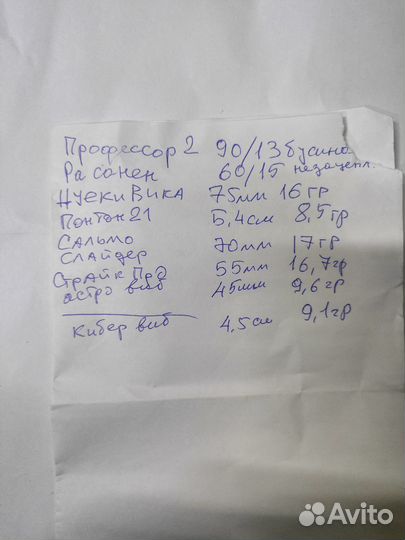 Профессор 2 90/13 бусина
Расанен 60/15 незацепл.
Нуеки Вика 75мм 16гр
Понтон 21 5,4см 8,5гр
Сальмо
Слайдер 70мм 17гр
Страйк Про 55мм 16,7гр
астро виб 45мм 9,6гр
Кибер виб 4,5см 9,1гр
Avito